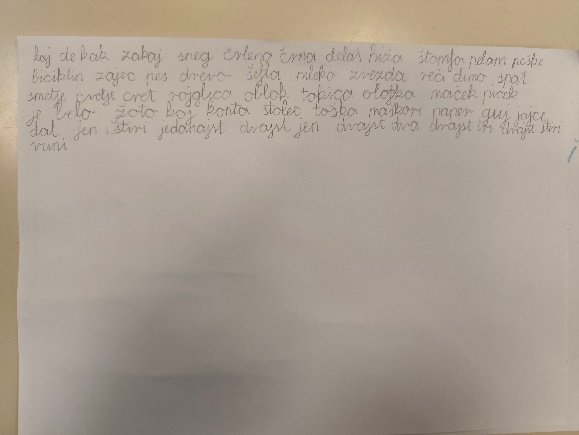 koj de kak zakaj sneg črleno črna delaš hiža štamfa pelam peške
biciklin zajec pes drevo šefla mleko zvezda reči dimo spat
smetje cvetje cvet rojglca oblok tobica olofka maček piček
je belo žoto koj konta stolec taška maškori paper guj jajce
dal jen štiri jedonajst dvajst jen dvajst dva dvajst tri dvajst štiri
vuni